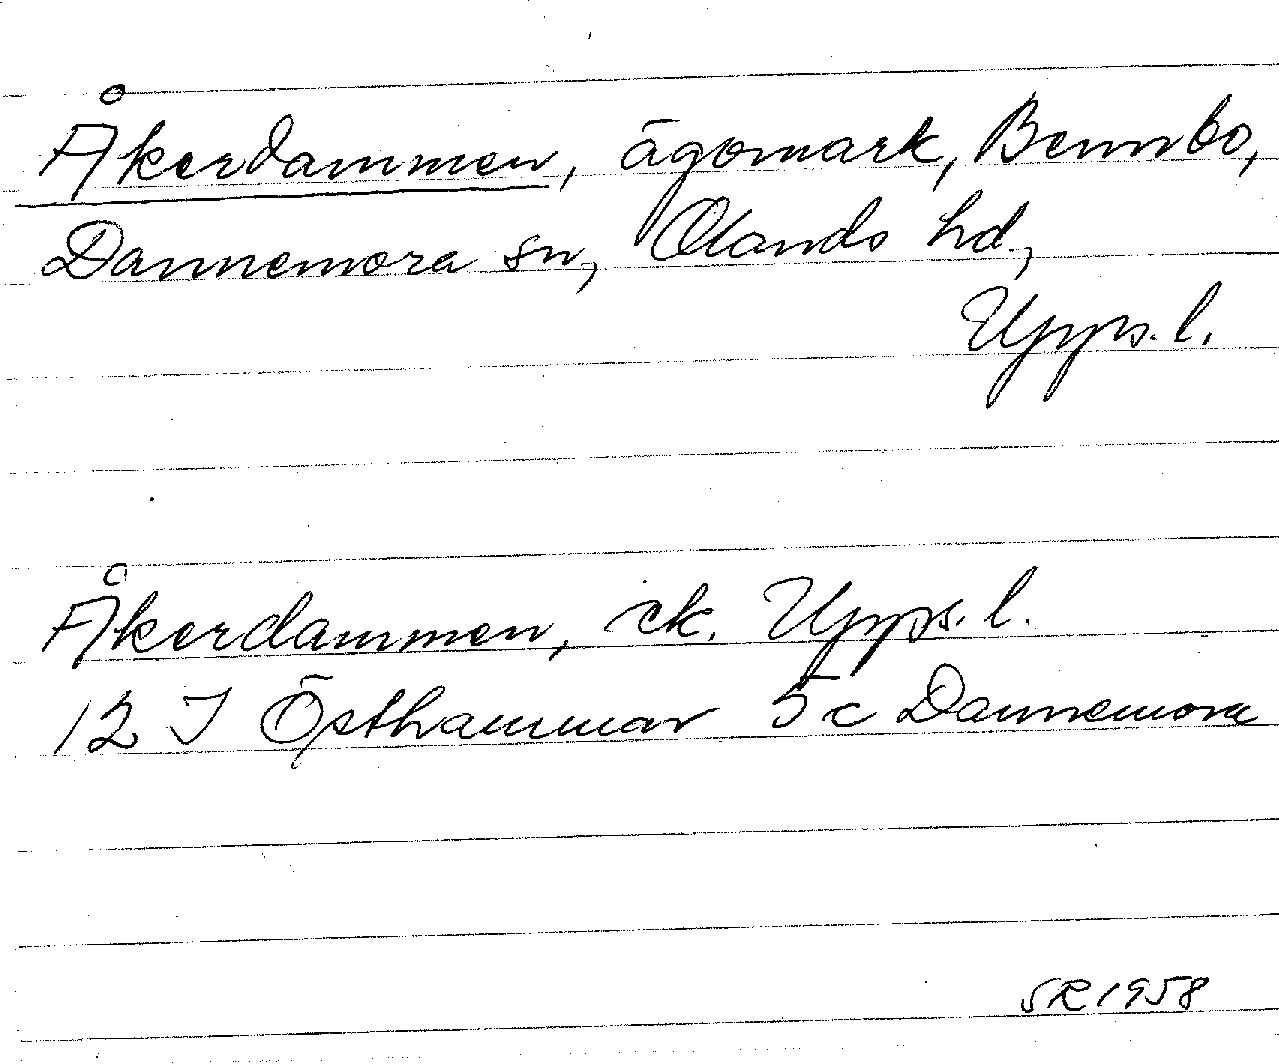 Åkerdammen, ägomark, Bennbo,
Dannemora sn, Olands hd,
Upps. l.
Åkerdammen, ek. Upps. l.
12 I Östhammar 5 c Dannemora
SR 1958